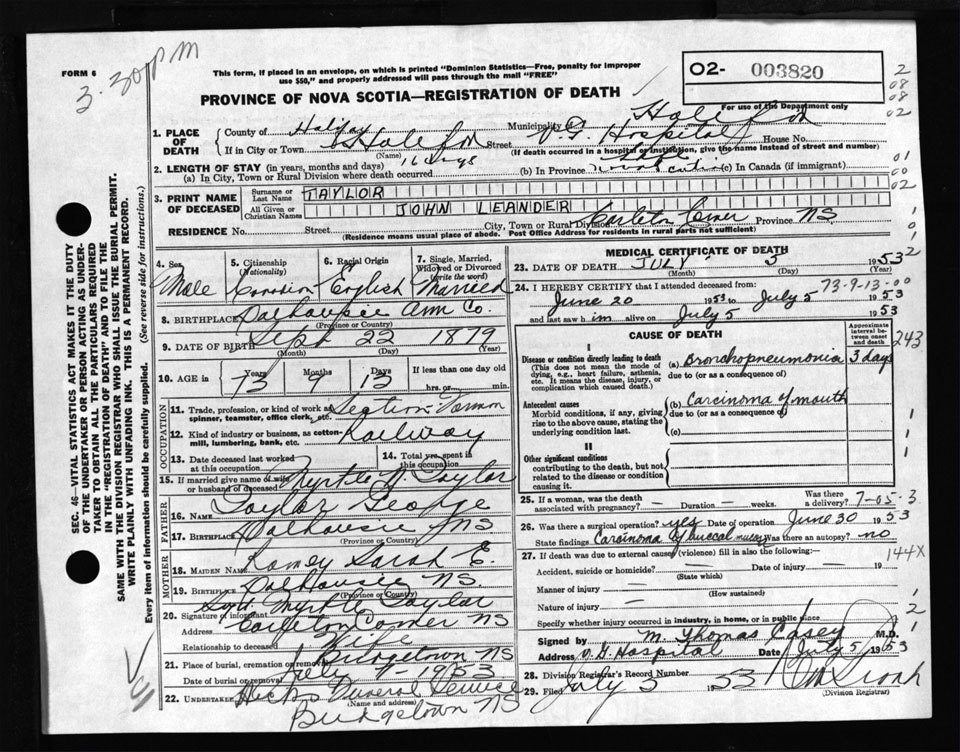 3.30 PM
FORM 6
This form, if placed in an envelope, on which is printed "Dominion Statistics—Free, penalty for improper
use $50," and properly addressed will pass through the mail "FREE"
PROVINCE OF NOVA SCOTIA—REGISTRATION OF DEATH
O2- 003820
For use of the Department only
2
08
08
02
1. PLACE OF DEATH County of Halifax Municipality of Halifax
If in City or Town Halifax (Name) Street V.G. Hospital House No.
(If death occurred in a hospital or institution, give the name instead of street and number)
2. LENGTH OF STAY (in years, months and days)
(a) In City, Town or Rural Division where death occurred 16 days (b) In Province Life (c) In Canada (if immigrant)
01
00
02
3. PRINT NAME OF DECEASED Surname or Last Name TAYLOR
All Given or Christian Names JOHN LEANDER
RESIDENCE No. Street City, Town or Rural Division Carleton Corner Province NS
(Residence means usual place of abode. Post Office Address for residents in rural parts not sufficient)
4. Sex Male
5. Citizenship (Nationality) Canadian
6. Racial Origin English
7. Single, Married, Widowed or Divorced (write the word) Married
8. BIRTHPLACE Dalhousie Ann Co.
(Province or Country)
9. DATE OF BIRTH Sept 22 1879
(Month) (Day) (Year)
10. AGE in 73 Years 9 Months 13 Days If less than one day old hrs. or min.
OCCUPATION
11. Trade, profession, or kind of work as spinner, teamster, office clerk, etc. Section-
12. Kind of industry or business, as cotton-mill, lumbering, bank, etc. Railway
13. Date deceased last worked at this occupation
14. Total yrs. spent in this occupation
15. If married give name of wife or husband of deceased Myrtle N. Taylor
FATHER
16. NAME Taylor George
17. BIRTHPLACE Dalhousie NS
(Province or Country)
MOTHER
18. MAIDEN NAME Ramey Sarah E.
19. BIRTHPLACE Dalhousie NS.
(Province or Country)
20. Signature of informant Sgd. Myrtle Taylor
Address Carleton Corner NS
Relationship to deceased Wife
21. Place of burial, cremation or removal Bridgetown NS
Date of burial or removal July 7 1953
22. UNDERTAKER Hicks Funeral Service
(Name and address)
Bridgetown NS
MEDICAL CERTIFICATE OF DEATH
23. DATE OF DEATH JULY 5 1953
(Month) (Day) (Year)
24. I HEREBY CERTIFY that I attended deceased from: 73-9-13-00
June 20 1953 to July 5 1953
and last saw him alive on July 5 1953
CAUSE OF DEATH
Approximate interval between onset and death
243
I
Disease or condition directly leading to death
(This does not mean the mode of dying, e.g., heart failure, asthenia, etc. It means the disease, injury, or complication which caused death.)
(a) Bronchopneumonia 3 days
due to (or as a consequence of)
Antecedent causes
Morbid conditions, if any, giving rise to the above cause, stating the underlying condition last.
(b) Carcinoma of mouth
due to (or as a consequence of)
(c)
II
Other significant conditions
contributing to the death, but not related to the disease or condition causing it.
25. If a woman, was the death associated with pregnancy? — Duration — weeks. Was there a delivery?
7-05-3
26. Was there surgical operation? yes Date of operation June 30 1953
State findings Carcinoma of buccal mucosa Was there an autopsy? no
27. If death was due to external causes (violence) fill in also the following:—
144X
Accident, suicide or homicide? — Date of injury — 19
(State which)
Manner of injury
(How sustained)
Nature of injury —
Specify whether injury occurred in industry, in home, or in public place
Signed by M. Thomas Casey M.D.
Address V.G Hospital Date July 5 1953
28. Division Registrar's Record Number
29. Filed July 5 1953
(Division Registrar)
SEC. 46—VITAL STATISTICS ACT MAKES IT THE DUTY
OF THE UNDERTAKER OR PERSON ACTING AS UNDER-
TAKER TO OBTAIN ALL THE PARTICULARS REQUIRED
IN THE "REGISTRATION OF DEATH" AND TO FILE THE
SAME WITH THE DIVISION REGISTRAR WHO SHALL ISSUE THE BURIAL PERMIT.
WRITE PLAINLY WITH UNFADING INK. THIS IS A PERMANENT RECORD.
Every item of information should be carefully supplied. (See reverse side for instructions.)